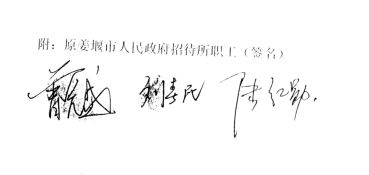 附：原姜堰市人民政府招待所职工（签名）
刘春民 陆红勤